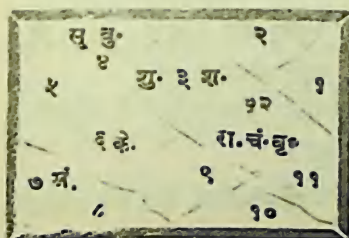 सू बु· २
४
५ शु· ३ श· १
१२
६ के· रा. चं· बृ॰
७ मं. ९ ११
८ १०